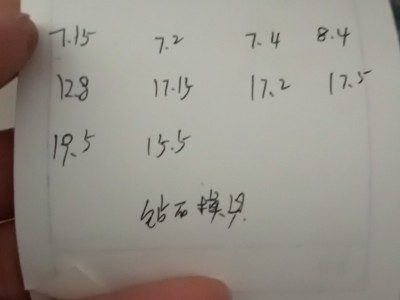 7.15 7.2 7.4 8.4
12.8 17.15 17.2 17.5
19.5 15.5
钻石模具